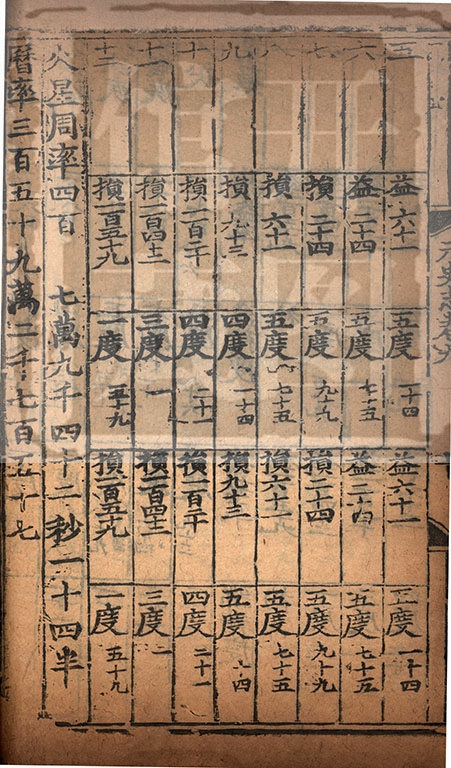 益六十一 五度 一十四 益六十一 五度 一十四
六 益二十四 五度 七十五 益二十四 五度 七十五
七 損二十四 五度 九十九 損二十四 五度 九十九
八 損六十一 五度 七十五 損六十一 五度 七十五
九 損九十三 四度 一十四 損九十三 五度 一十四
十 損一百二十 四度 二十一 損一百二十 四度 二十一
十一 損一百四十二 三度 一 損一百四十二 三度 一
十二 損一百五十九 一度 五十九 損一百五十九 一度 五十九
火星周率四百 七萬九千四十二秒一十四半
曆率三百五十九萬二千七百五十七